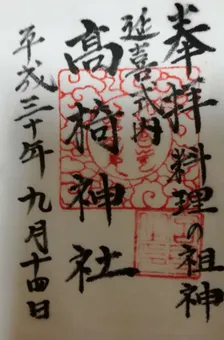 奉拝
料理の祖神
延喜式内
高椅神社
平成三十年九月十四日